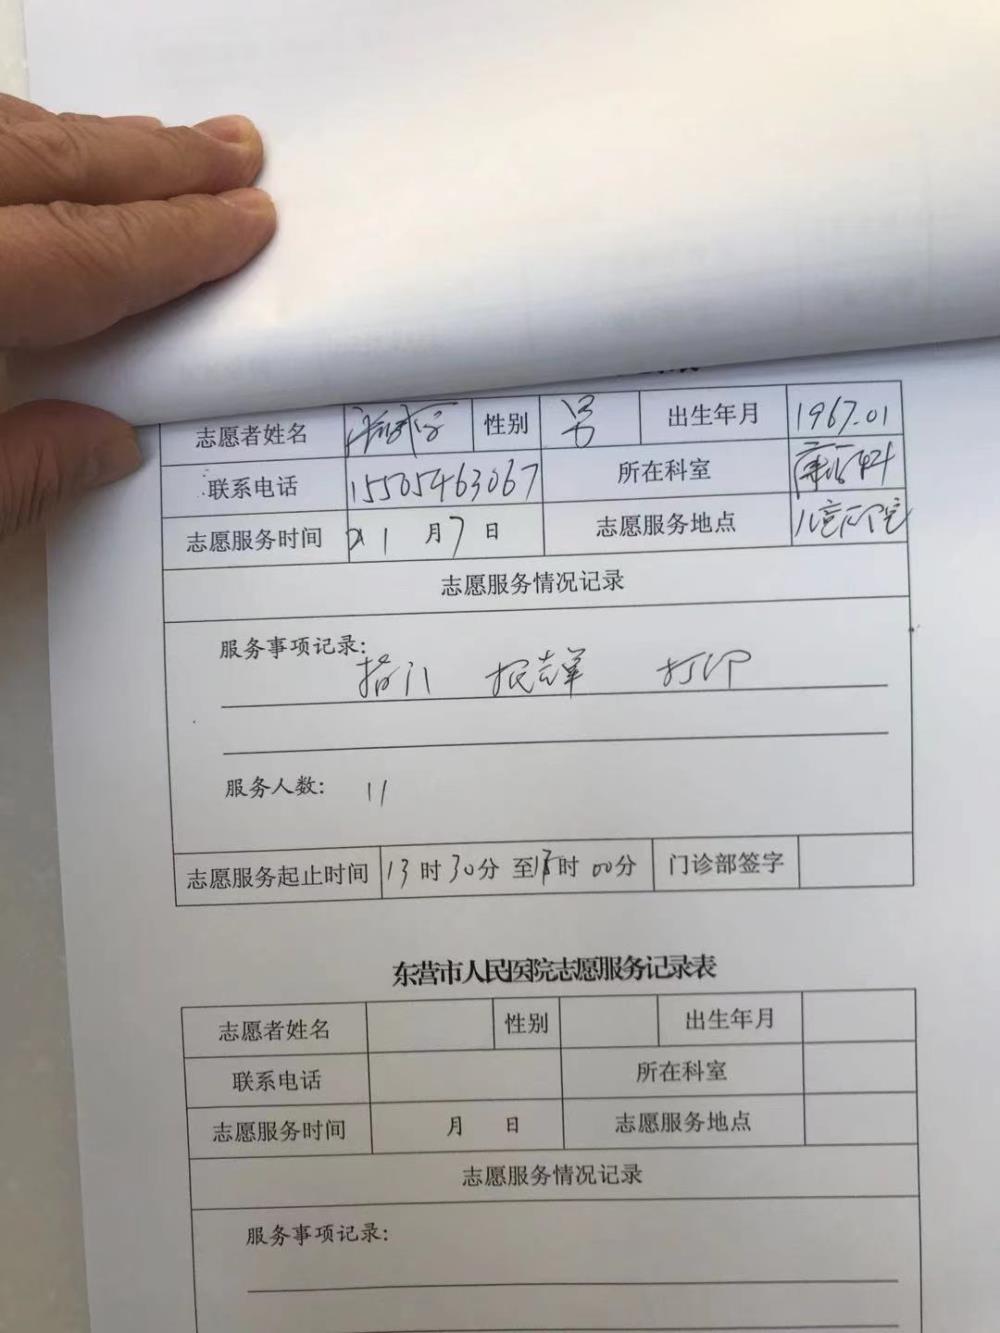 志愿者姓名 性别 男 出生年月 1967.01
联系电话 15505463067 所在科室
志愿服务时间 21 1 月 7 日 志愿服务地点
志愿服务情况记录
服务事项记录:
指门 报告单 打印
服务人数: 11
志愿服务起止时间 13 时 30 分 至 时 00 分 门诊部签字
东营市人民医院志愿服务记录表
志愿者姓名 性别 出生年月
联系电话 所在科室
志愿服务时间 月 日 志愿服务地点
志愿服务情况记录
服务事项记录: